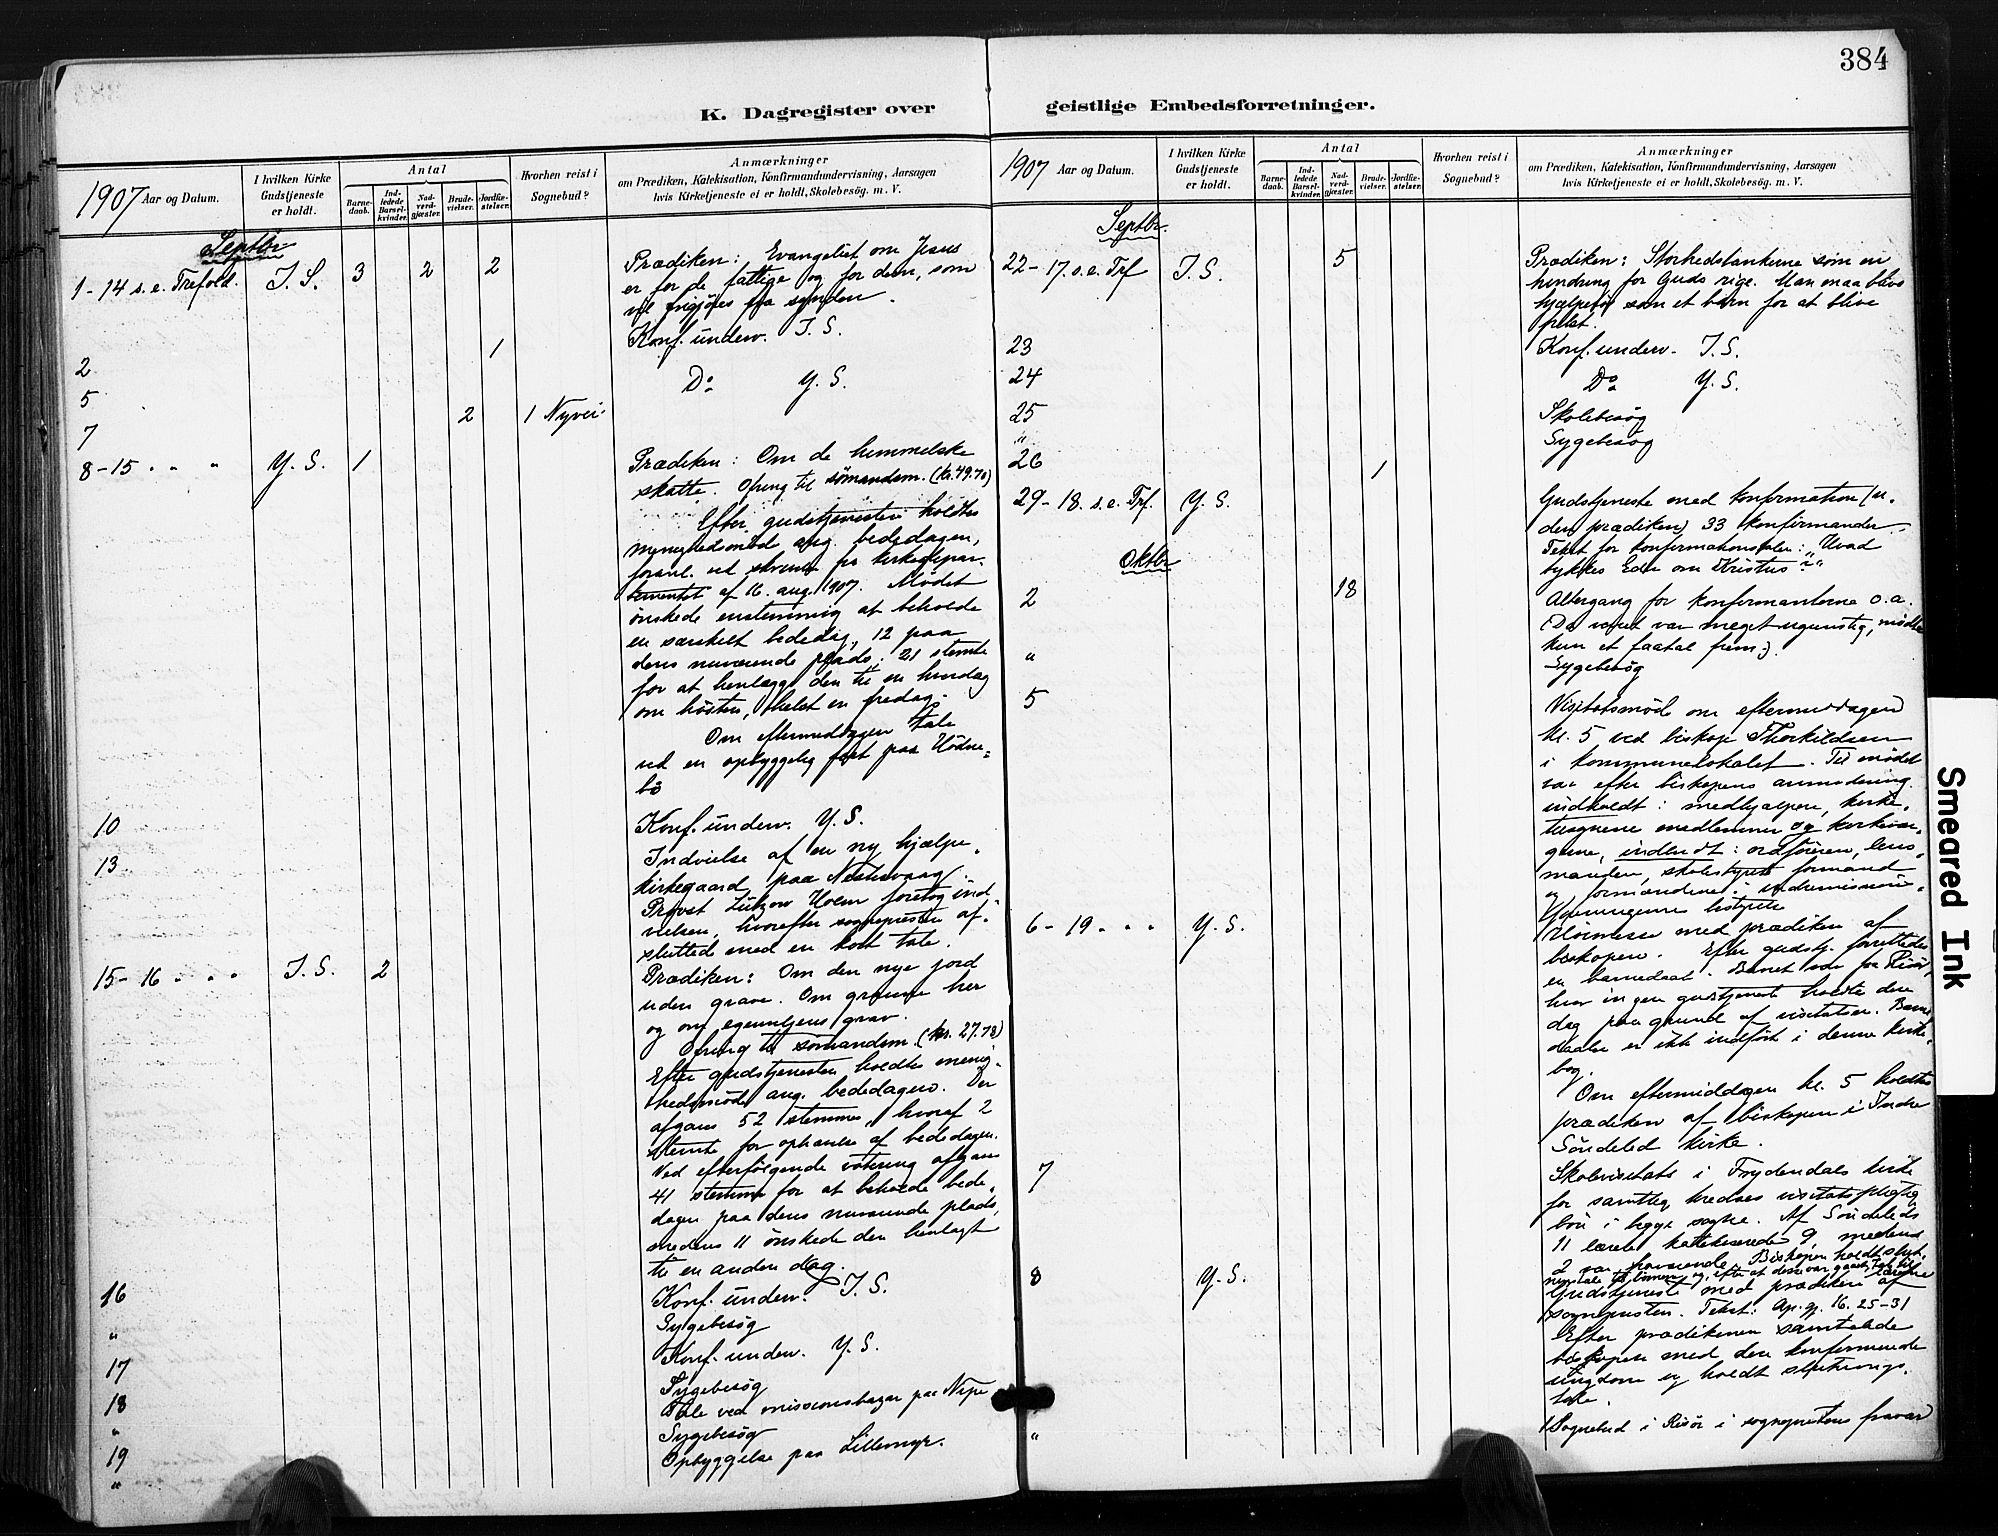 384
K. Dagregister over geistlige Embedsforretninger.
1907 Aar og Datum.
I hvilken Kirke Gudstjeneste er holdt.
Antal
Barnedaab.
Indledede Barselkvinder.
Nadverdgjæster.
Brudevielser.
Jordfæstelser.
Hvorhen reist i Sognebud?
Anmærkninger
om Prædiken, Katekisation, Konfirmandundervisning, Aarsagen
hvis Kirketjeneste ei er holdt, Skolebesøg. m. V.
Septbr
1-14 s.e. Trefold. I. S. 3 2 2
Prædiken: Evangeliet om Jesus
er for de fattige og for dem, som
vil frigjøres fra synden.
2 1 Konf. underv. I. S.
5 Do Y. S.
7 2 1 Nyvei
8-15 " " " Y. S. 1
Prædiken: Om de himmelske
skatte. Ofring til sømandsm. (kr. 49.70)
Efter gudstjenesten holdtes
menighedsmøde ang. bededagen,
foranl. ved skrivelse fra kirkedepar-
tementet af 16. aug. 1907. Mødet
ønskede enstemmig at beholde
en særskilt bededag, 12 paa
dens nuværende plads; 21 stemte
for at henlægge den til en hverdag
om høsten, helst en fredag.
Om eftermiddagen tale
ved en opbyggelig fest paa Hødne-
bø
10 Konf. underv. Y. S.
13 Indvielse af en ny hjælpe-
kirkegaard paa
Provst Lützow Holm foretog ind-
vielsen, hvorefter sognepresten af-
sluttede med en kort tale.
15-16 " " " I. S. 2
Prædiken: Om den nye jord
uden grave. Om gravene her
og om egenviljens grav.
Ofring til sømandsm. (kr. 27.78)
Efter gudstjenesten holdtes menig-
hedsmøde ang. bededagen. Der
afgaves 52 stemmer, hvoraf 2
stemte for ophævelse af bededagen.
Ved efterfølgende votering afgaves
41 stemmer for at beholde bede-
dagen paa dens nuværende plads,
medens 11 ønskede den henlagt
til en anden dag.
16 Konf. underv. I. S.
" Sygebesøg
17 Konf. underv. Y. S.
18 Sygebesøg
" Tale ved missionsbazar paa
19 Sygebesøg
" Opbyggelse paa Lillemyr.
1907 Aar og Datum.
I hvilken Kirke Gudstjeneste er holdt.
Antal
Barnedaab.
Indledede Barselkvinder.
Nadverdgjæster.
Brudevielser.
Jordfæstelser.
Hvorhen reist i Sognebud?
Anmærkninger
om Prædiken, Katekisation, Konfirmandundervisning, Aarsagen
hvis Kirketjeneste ei er holdt, Skolebesøg. m. V.
Septbr.
22-17. s.e. Trf I. S. 5
Prædiken: Storhedstankerne som en
hindring for Guds rige. Man maa blive
hjælpeløs som et barn for at blive
frelst.
23 Konf. underv. I. S.
24 Do Y. S.
25 Skolebesøg
" Sygebesøg
26 1
29-18. s.e. Trf. Y. S.
Gudstjeneste med konfirmation (u-
den prædiken) 33 konfirmander
Tekst for konfirmationstalen: "Hvad
tykkes Eder om Kristus?"
Oktbr
2 18
Altergang for konfirmanterne o.a.
(Da veiret var meget ugunstig, mødte
kun et faatal frem.)
" Sygebesøg
5 Visitatsmøde om eftermiddagen
kl. 5 ved biskop Thorkildsen
i kommunelokalet. Til mødet
var efter biskopens anmodning
indkaldt: medhjælpere, kirke-
tilsynene medlemmer og kirkevær-
gerne, indbudt: ordføreren, lens-
manden, skolestyrets formand
og formændene i indremissions-
foreningernes bestyrelse
6-19 " " " Y. S.
Høimesse med prædiken af
biskopen. Efter gudstj. forrettedes
en barnedaab. Barnet var fra Risør,
hvor ingen gudstjeneste holdtes den
dag paa grund af visitatsen. Barne-
daaben er ikke indført i denne kirke-
bog.
Om eftermiddagen kl. 5 holdtes
prædiken af biskopen i Indre
Søndeled kirke.
7 Skolevisitats i Frydendals kirke
for samtlige kredses visitatspligtige
børn i begge sogne. Af Søndeleds
11 lærere katekiserede 9, medens
2 var fraværende. Biskopen holdt slut-
ningstale til børnene og, efter at disse var gaaet, tale til lærerne
8 Y. S.
Gudstjeneste med prædiken af
sognepresten. Tekst: Ap. gj. 16. 25-31
Efter prædikenen samtalede
biskopen med den konfirmerede
ungdom og holdt slutnings-
tale.
" 1 Sognebud i Risør i sogneprestens fravær
Smeared Ink